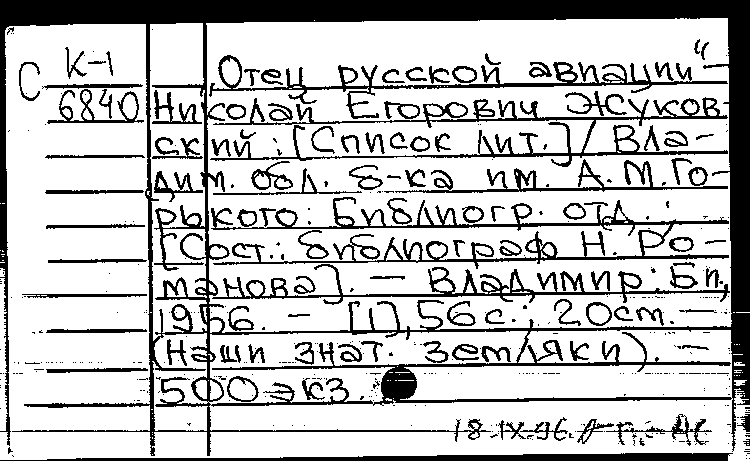 С К-1
6840
„Отец русской авиации“ –
Николай Егорович Жуков-
ский: [Список лит.] / Вла-
дим. обл. б-ка им. А. М. Го-
рького: Библиогр. отд.;
[Сост.: библиограф Н. Ро-
манова]. – Владимир: Би,
1956. – [1], 56 с.; 20 см. –
(Наши знат. земляки). –
500 экз.
18.IX.96.